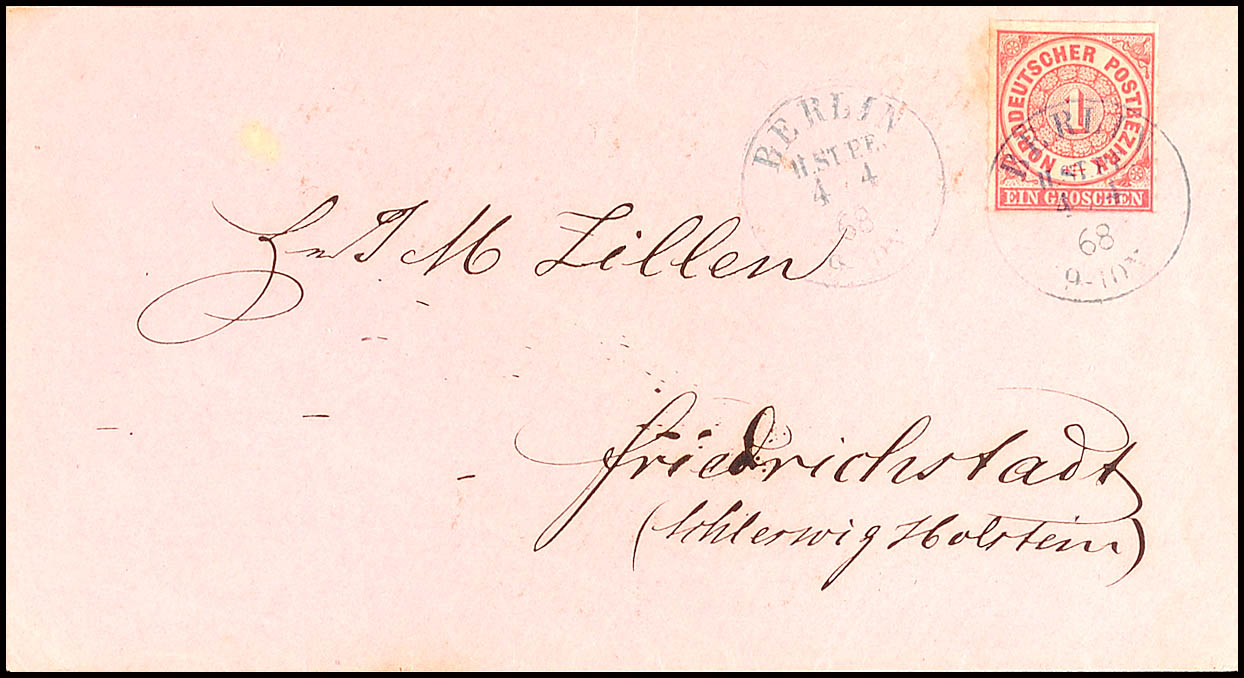 NORDDEUTSCHER POSTBEZIRK
1
EIN GROSCHEN
BERLIN
4 4
68
BERLI
4 4
68
9-10 N
J M Zillen
Friedrichstadt
(Schleswig Holstein)